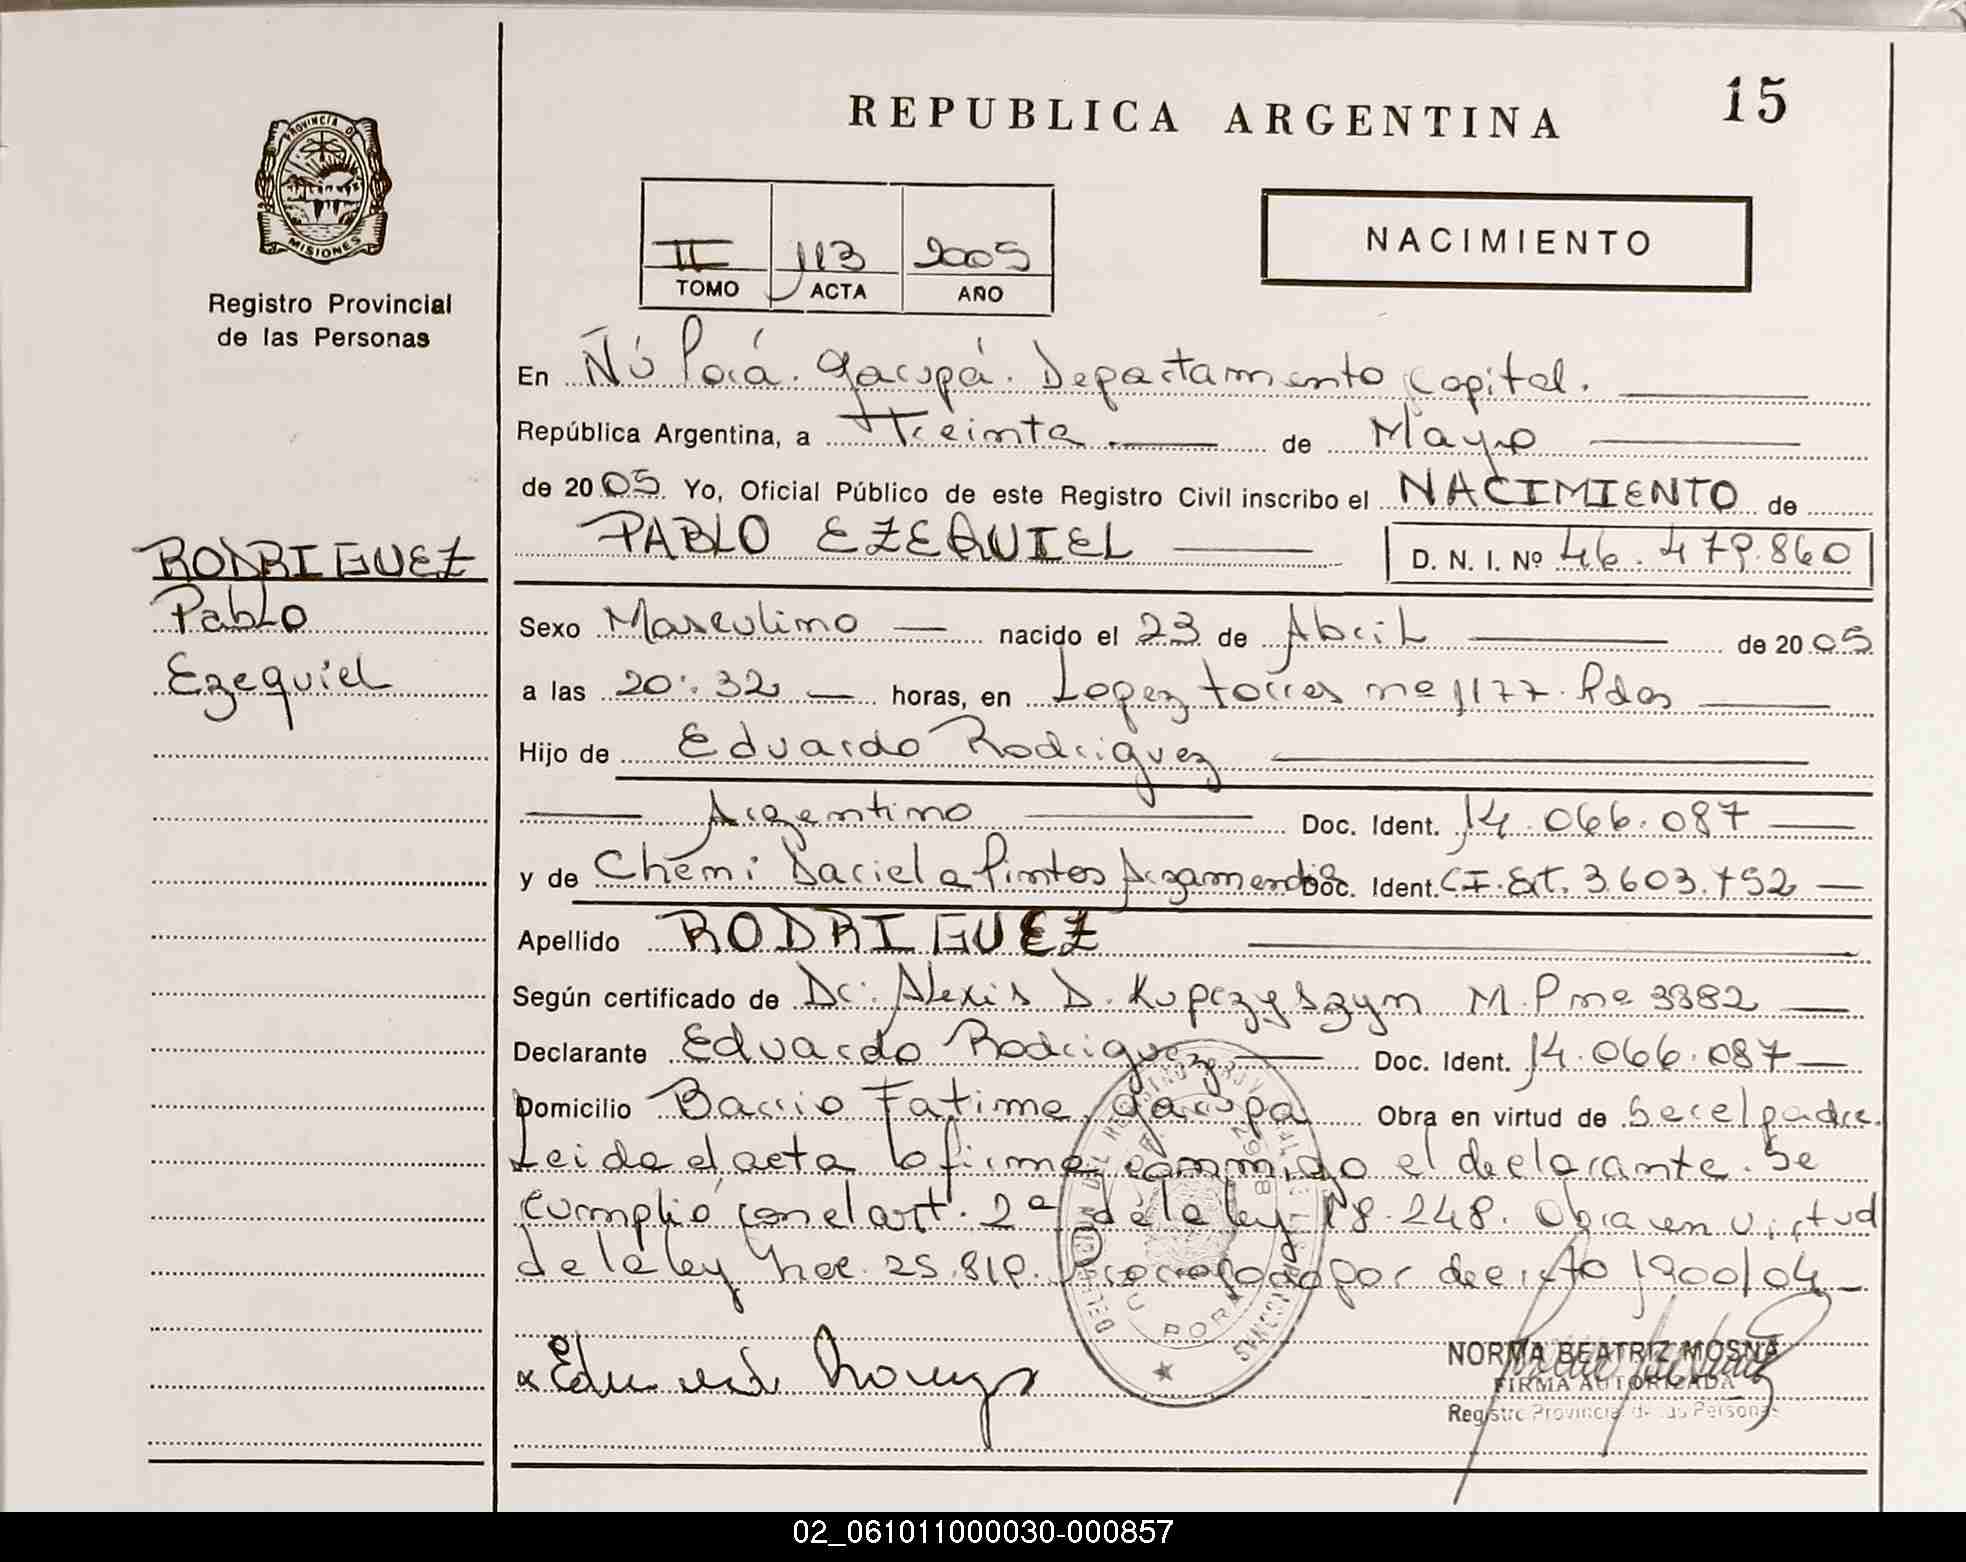 REPUBLICA ARGENTINA
15
PROVINCIA DE
MISIONES
Registro Provincial
de las Personas
II 113 2005
TOMO ACTA AÑO
NACIMIENTO
En Ñú Porá. Garupá. Departamento Capital.
República Argentina, a Treinta de Mayo
de 2005 Yo, Oficial Público de este Registro Civil inscribo el NACIMIENTO de
PABLO EZEQUIEL D. N. I. Nº 46.479.860
RODRIGUEZ
Pablo
Ezequiel
Sexo Masculino nacido el 23 de Abril de 2005
a las 20:32 horas, en Lopez torres nº 1177. Pdas
Hijo de Eduardo Rodriguez
Argentino Doc. Ident. 14.066.087
y de Chemi Daciela Pintos Argamendos Doc. Ident. CI. Ext. 3.603.752
Apellido RODRIGUEZ
Según certificado de Dr: Alexis D. Kupczyszyn M.P nº 3382
Declarante Eduardo Rodriguez Doc. Ident. 14.066.087
Domicilio Barrio Fatima, Garupa Obra en virtud de Ser el padre.
Leida el acta la firma conmigo el declarante. Se
cumplió con el art. 2º de la ley 18.248. Obra en virtud
de la ley nº 25.819. Prorrogado por decreto 1900/04
NORMA BEATRIZ MOSNA
FIRMA AUTORIZADA
Registro Provincial de las Personas
02_061011000030-000857